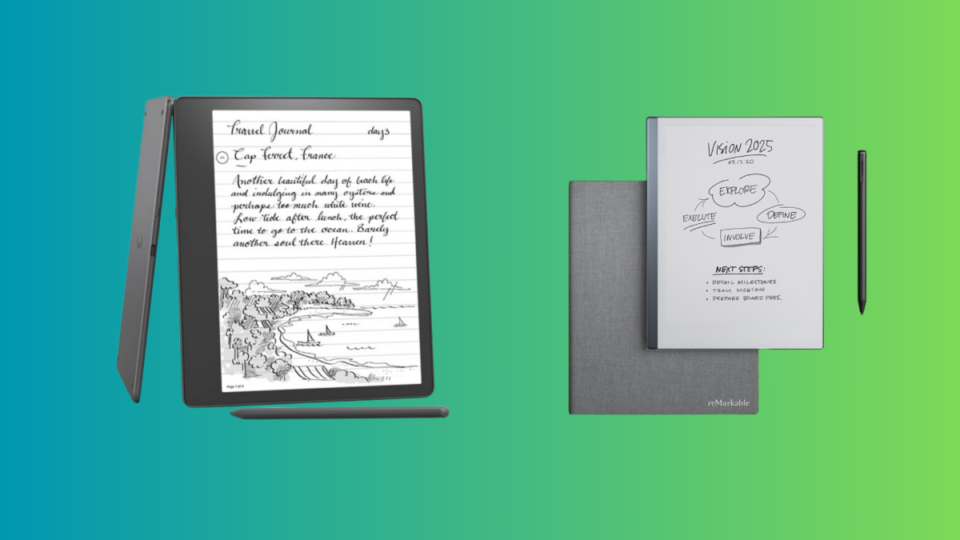 Travel Journal day 3
Cap Ferret, France
Another beautiful day of beach life
and indulging in many oysters and
perhaps too much white wine.
Low tide after lunch, the perfect
time to go to the ocean. Barely
another soul there. Heaven!
Page 3 of 4
VISION 2025
EXPLORE
EXECUTE
DEFINE
INVOLVE
NEXT STEPS:
• DETAIL MILESTONES
• TEAM MEETING
• PREPARE BOARD PRES.
reMarkable